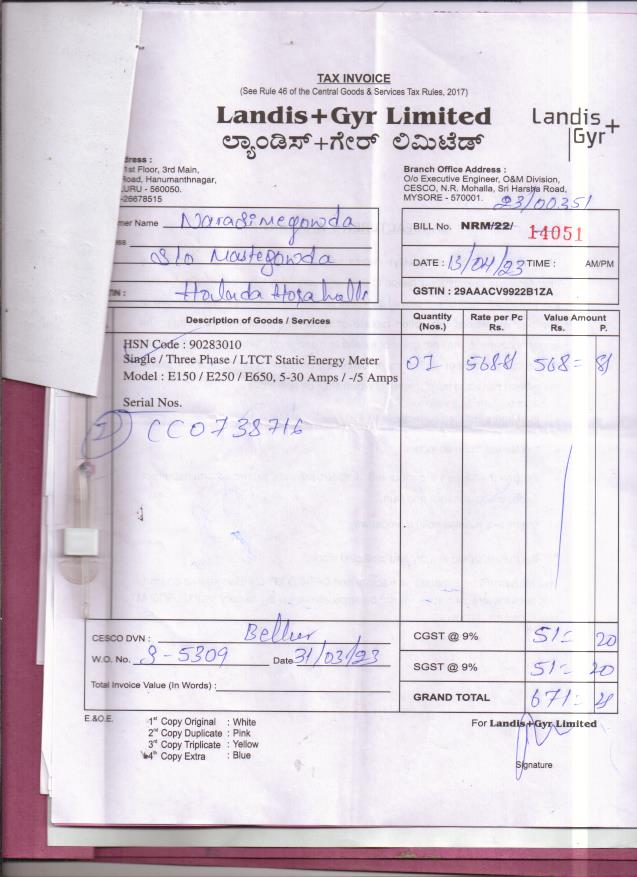 TAX INVOICE
(See Rule 46 of the Central Goods & Services Tax Rules, 2017)
Landis+Gyr Limited
ಲ್ಯಾಂಡಿಸ್+ಗೇರ್ ಲಿಮಿಟೆಡ್
Landis
Gyr+
dress :
1st Floor, 3rd Main,
Road, Hanumanthnagar,
URU - 560050.
-26678515
Branch Office Address :
O/o Executive Engineer, O&M Division,
CESCO, N.R. Mohalla, Sri Harsha Road,
MYSORE - 570001.
23/00351
mer Name Narasimegowda
S/o Mastegowda
BILL No. NRM/22/ 14051
DATE : 13/04/23 TIME : AM/PM
GSTIN : 29AAACV9922B1ZA
Description of Goods / Services
Quantity (Nos.)
Rate per Pc Rs.
Value Amount Rs. P.
HSN Code : 90283010
Single / Three Phase / LTCT Static Energy Meter
Model : E150 / E250 / E650, 5-30 Amps / -/5 Amps
01 568-81 568= 81
Serial Nos.
CC0738716
CESCO DVN : Bellur
W.O. No. S-5309 Date 31/03/23
Total Invoice Value (In Words) :
CGST @ 9% 51= 20
SGST @ 9% 51= 20
GRAND TOTAL 671= 21
E.&O.E.
1st Copy Original : White
2nd Copy Duplicate : Pink
3rd Copy Triplicate : Yellow
4th Copy Extra : Blue
For Landis+Gyr Limited
Signature